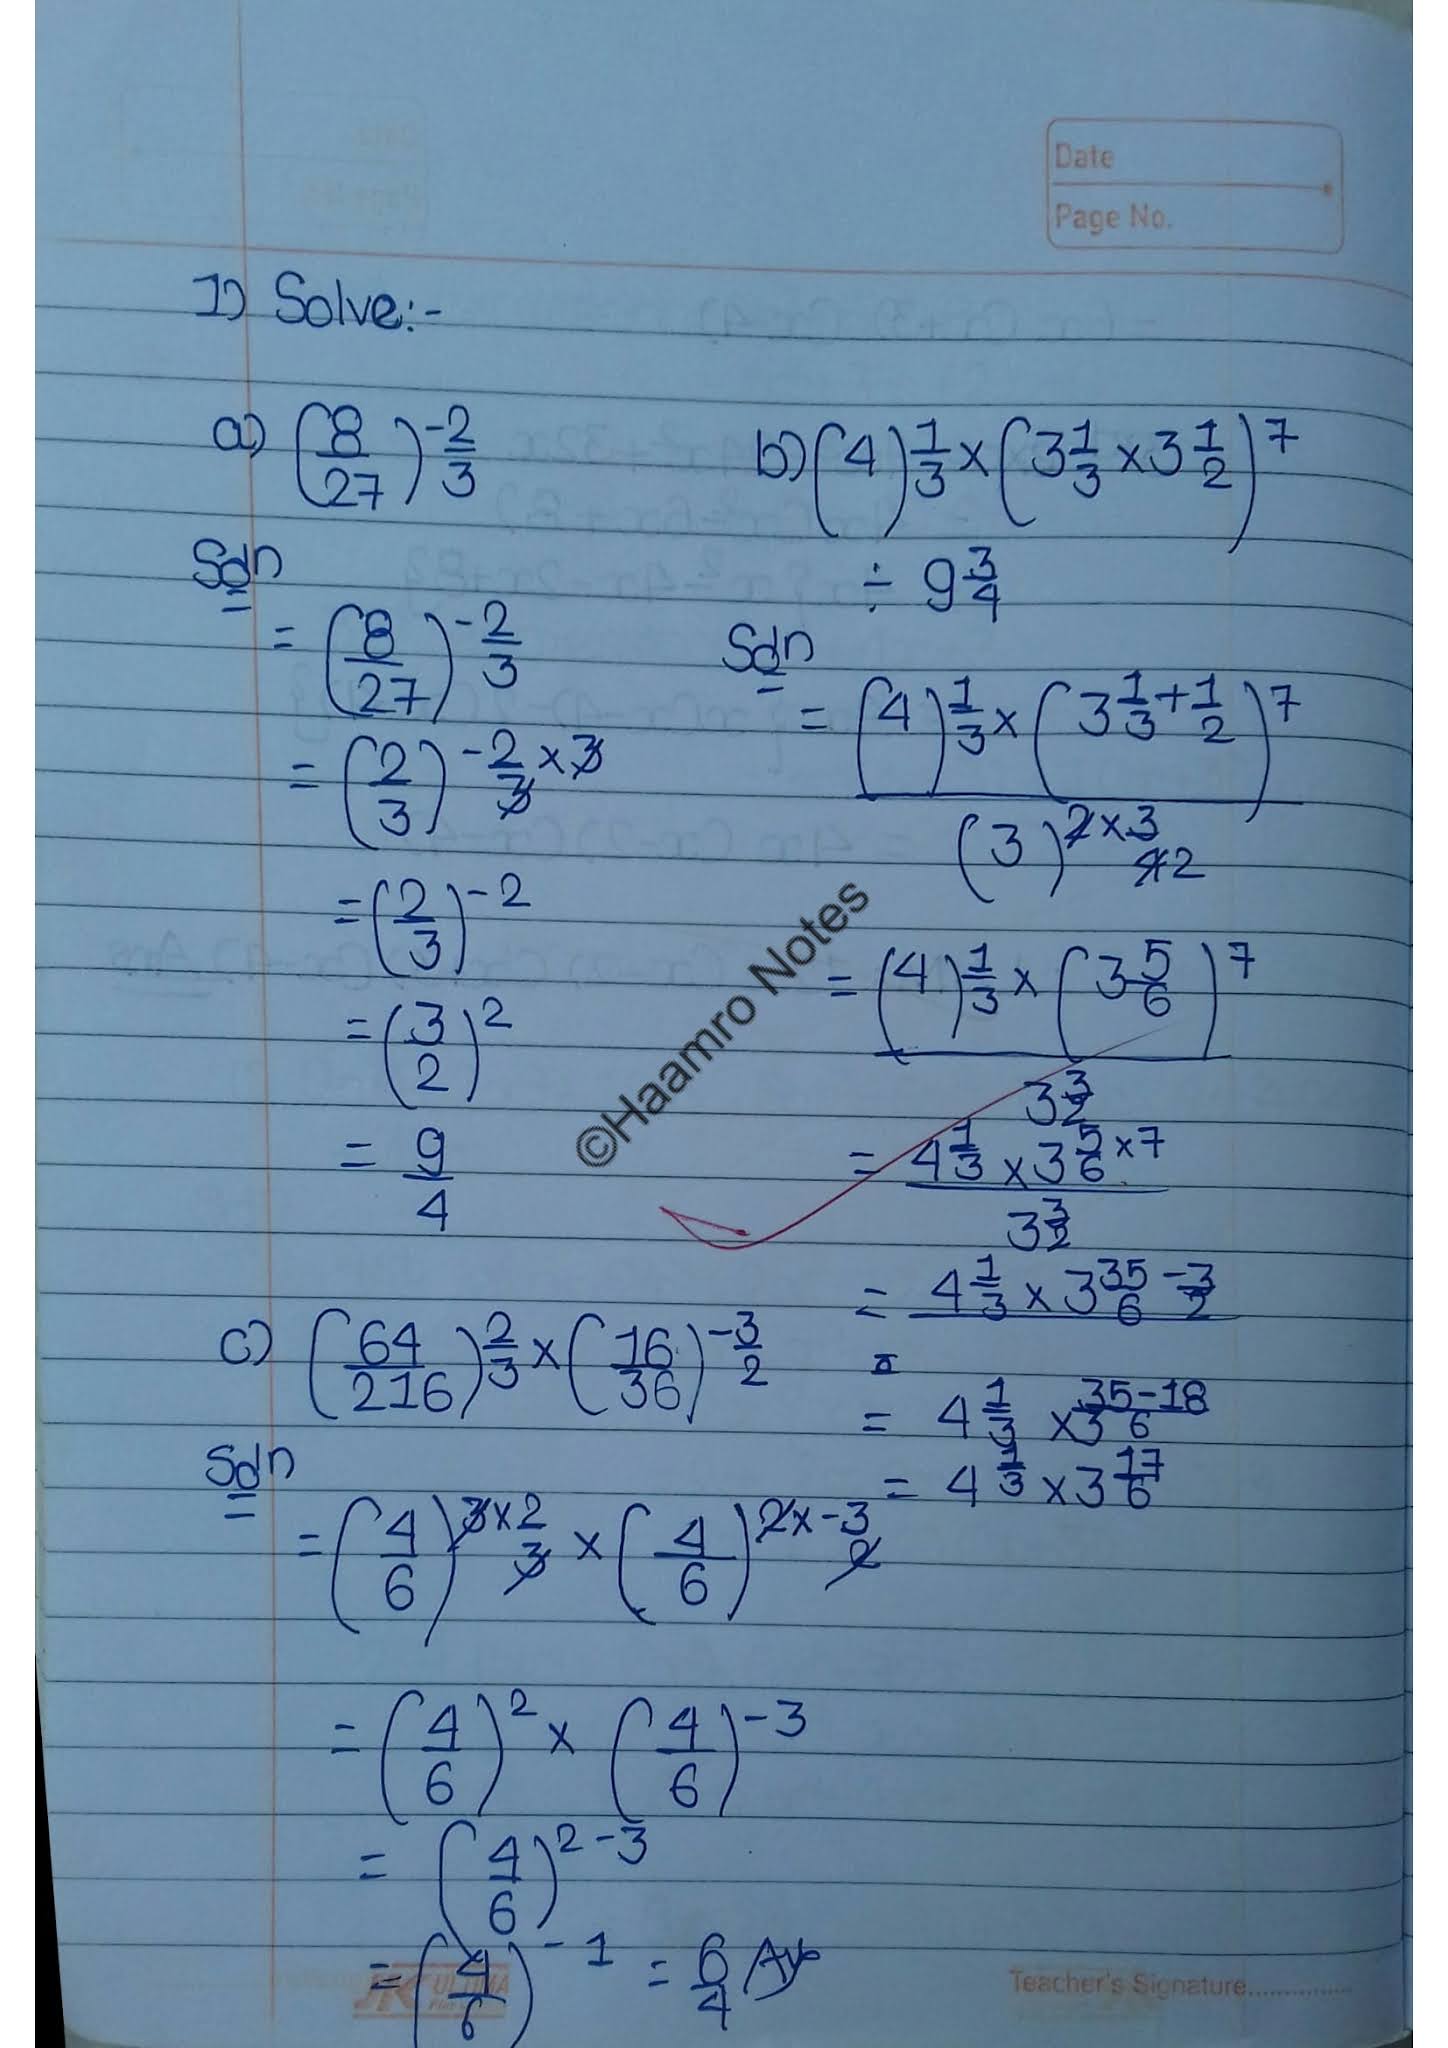 Date
Page No.
1) Solve:-
a) (8/27)^-2/3
Soln
= (8/27)^-2/3
= (2/3)^-2/3 × 3
= (2/3)^-2
= (3/2)^2
= 9/4
b) (4)^1/3 × (3^1/3 × 3^1/2)^7
÷ 9^3/4
Soln
= (4)^1/3 × (3^1/3 + 1/2)^7 / (3)^2 × 3/42
= (4)^1/3 × (3^5/6)^7 / 3^3/2
= 4^1/3 × 3^5/6 × 7 / 3^3/2
= 4^1/3 × 3^35/6 - 3/2
=
= 4^1/3 × 3^35-18/6
= 4^1/3 × 3^17/6
©Haamro Notes
c) (64/216)^2/3 × (16/36)^-3/2
Soln
= (4/6)^3 × 2/3 × (4/6)^2 × -3/2
= (4/6)^2 × (4/6)^-3
= (4/6)^2-3
= (4/6)^-1 = 6/4
Teacher's Signature..............